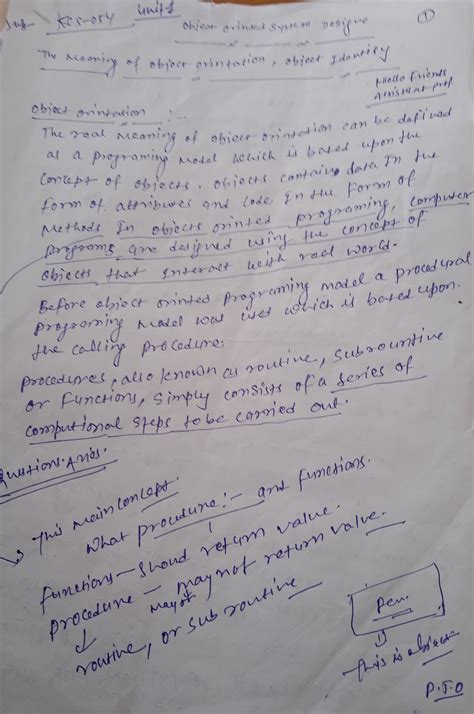 Sub- KCS-054 Unit-1 Object orinted System Designe ①
The Meaning of object orintation, object Identity
Hello Friends
Assistant prof
Object orintation :-
The real Meaning of object orintation can be defined
as a programing Model which is based upon the
concept of objects. objects contains data In the
form of attributes and code In the form of
Methods In objects orinted programing, computer
programs are designed using the concept of
objects that Interact with real world.
Before object orinted programing model a procedural
programing Model was used which is based upon
the calling procedure.
procedures, also known as routine, subrountine
or Functions, simply consists of a series of
computional steps to be carried out.
This main concept.
What procudure:- and functions.
functions - Should return value.
procedure - may not return value.
may or
routine, or sub routine
Pen.
This is object
P.T.O